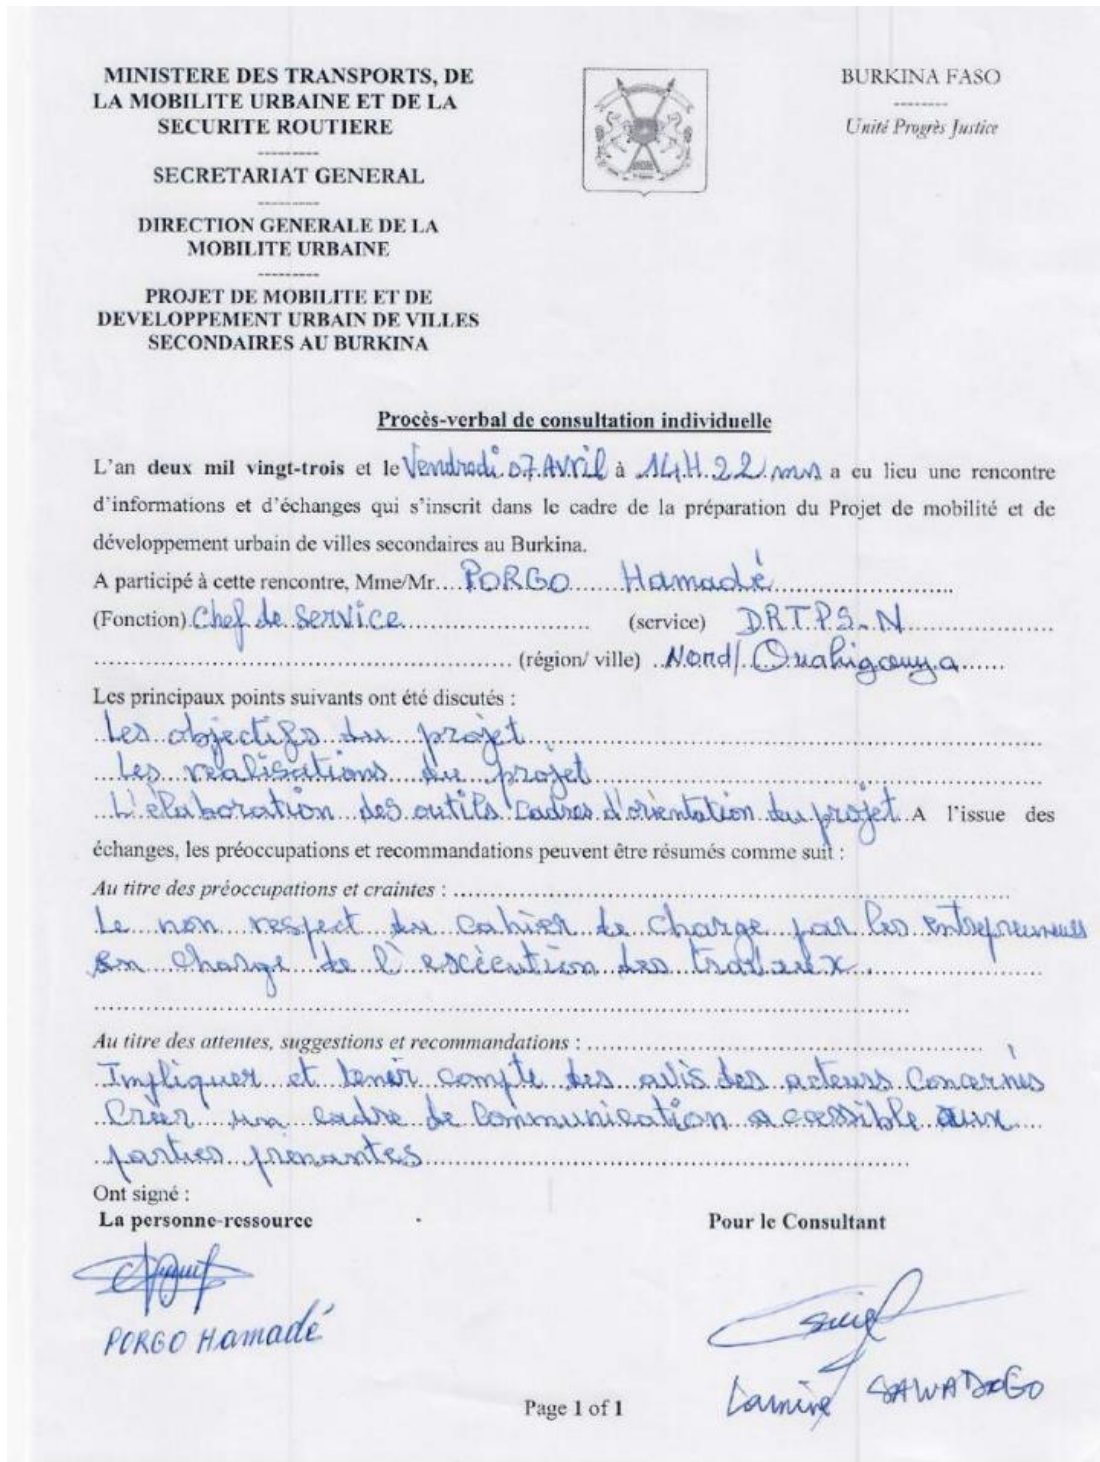 MINISTERE DES TRANSPORTS, DE
LA MOBILITE URBAINE ET DE LA
SECURITE ROUTIERE
---------
SECRETARIAT GENERAL
---------
DIRECTION GENERALE DE LA
MOBILITE URBAINE
---------
PROJET DE MOBILITE ET DE
DEVELOPPEMENT URBAIN DE VILLES
SECONDAIRES AU BURKINA
BURKINA FASO
--------
Unité Progrès Justice
Procès-verbal de consultation individuelle
L'an deux mil vingt-trois et le Vendredi 07 Avril à 14H 22 mn a eu lieu une rencontre
d'informations et d'échanges qui s'inscrit dans le cadre de la préparation du Projet de mobilité et de
développement urbain de villes secondaires au Burkina.
A participé à cette rencontre, Mme/Mr.... PORGO Hamadé
(Fonction) Chef de Service (service) DRTPS-N
(région/ ville) Nord/Ouahigouya
Les principaux points suivants ont été discutés :
Les objectifs du projet
Les realisations du projet
L'élaboration des outils Cadres d'orientation du projet. A l'issue des
échanges, les préoccupations et recommandations peuvent être résumés comme suit :
Au titre des préoccupations et craintes :
Le non respect du cahier de charge par les entrepreneurs
en charge de l'excécution des travaux
Au titre des attentes, suggestions et recommandations :
Impliquer et tenir compte des avis des acteurs Concernés
Créer un cadre de Communication acessible aux
parties prenantes
Ont signé :
La personne-ressource Pour le Consultant
PORGO Hamadé
Lamine SAWADOGO
Page 1 of 1